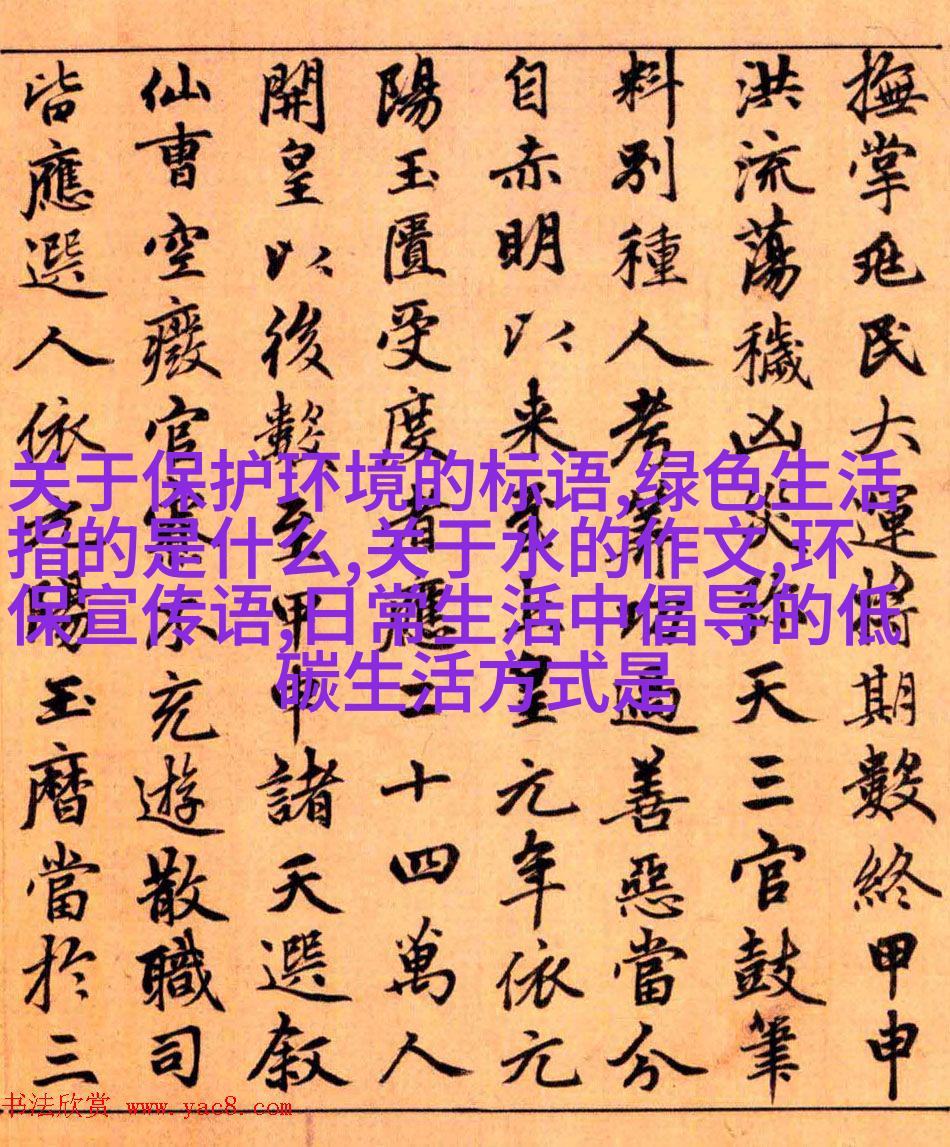 撫掌兆民大運將期數終甲申
洪流蕩穢凶災殄天三官鼓筆
料別種人考筭功過善惡當分
自赤明以来至上皇元年依元
陽玉匱受度者應二十四萬人
開皇以後數至甲申諸天選叙
仙曹空廢官寮不充遊散職司
皆應選人依元陽玉曆當於三
关于保护环境的标语,绿色生活
指的是什么,关于水的作文,环
保宣传语,日常生活中倡导的低
碳生活方式是
书法欣赏 www.yac8.com